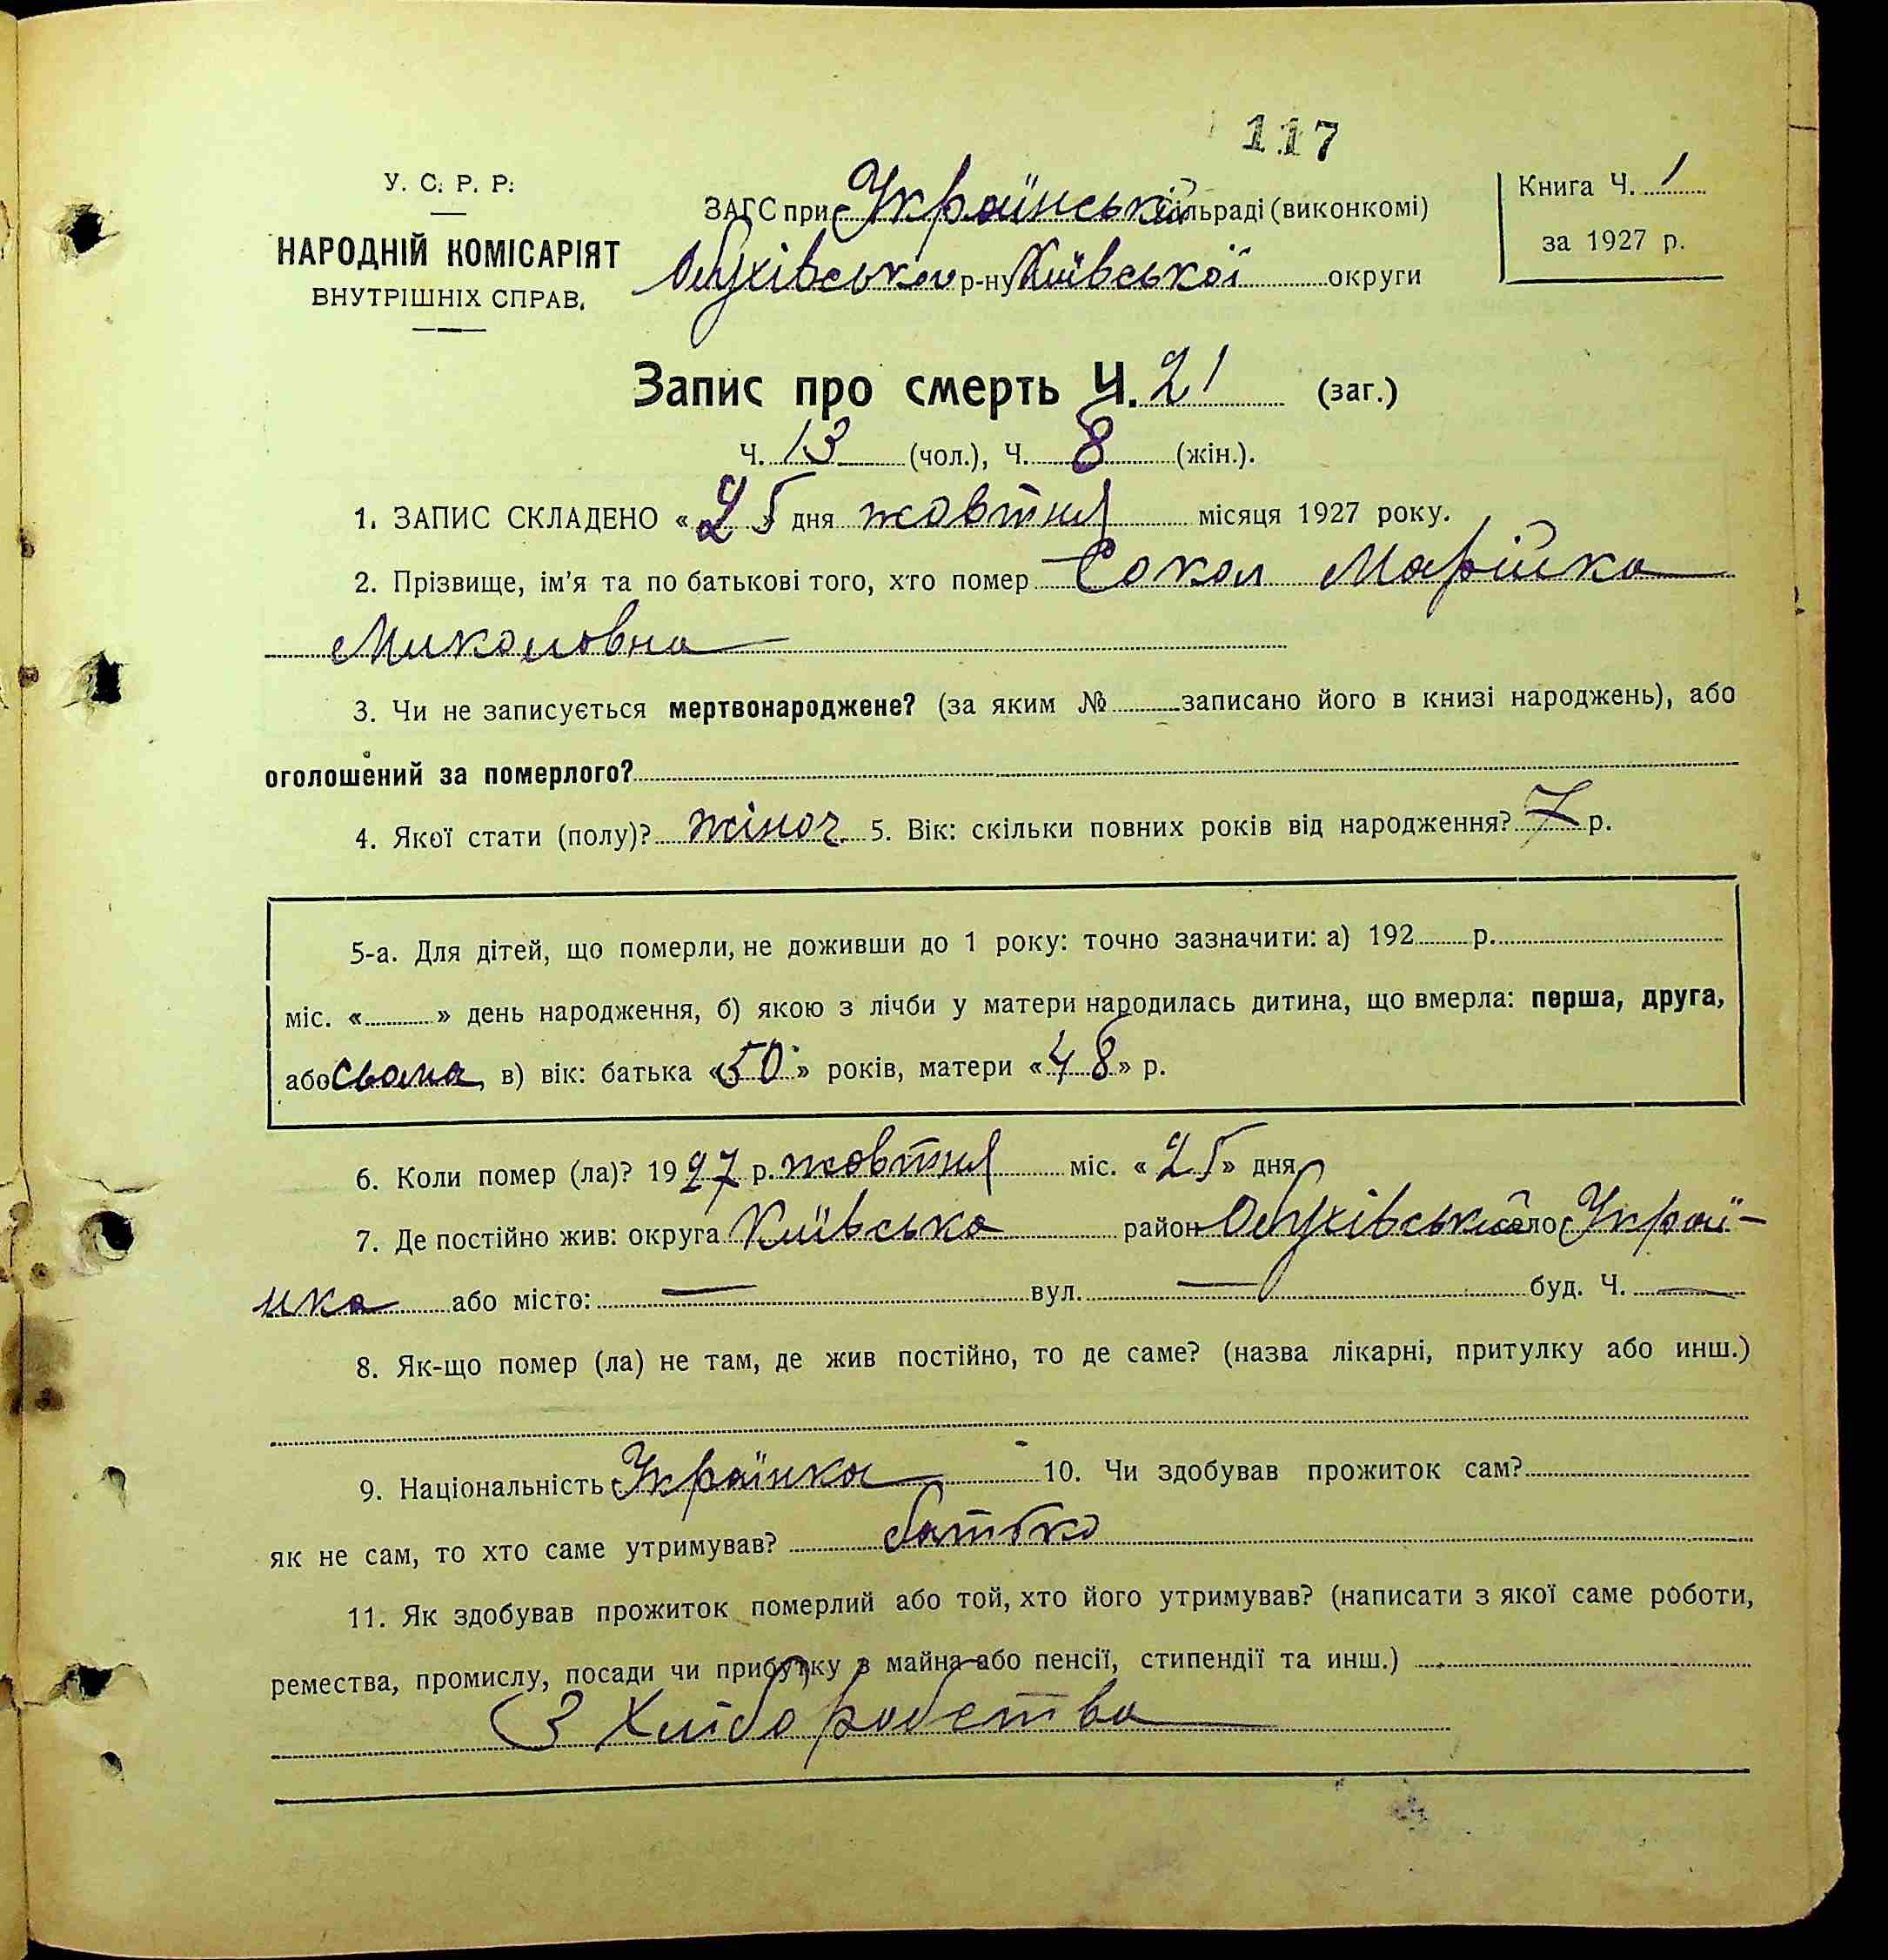 117
У. С. Р. Р.
НАРОДНІЙ КОМІСАРІЯТ
ВНУТРІШНІХ СПРАВ.
ЗАГС при Українській сільраді (виконкомі)
Обухівськог р-ну Київської округи
Книга Ч. 1
за 1927 р.
Запис про смерть Ч. 21 (заг.)
Ч. 13 (чол.), Ч. 8 (жін.).
1. ЗАПИС СКЛАДЕНО «25» дня жовтня місяця 1927 року.
2. Прізвище, ім’я та по батькові того, хто помер Сокол Марійка
Миколовна
3. Чи не записується мертвонароджене? (за яким № записано його в книзі народжень), або
оголошений за померлого?
4. Якої стати (полу)? жіноч. 5. Вік: скільки повних років від народження? 7 р.
5-а. Для дітей, що померли, не доживши до 1 року: точно зазначити: а) 192 р.
міс. « » день народження, б) якою з лічби у матери народилась дитина, що вмерла: перша, друга,
або сьома, в) вік: батька «50» років, матери «48» р.
6. Коли помер (ла)? 1927 р. жовтня міс. «25» дня
7. Де постійно жив: округа Київська район Обухівський село Украї-
нка або місто: — вул. — буд. Ч. —
8. Як-що помер (ла) не там, де жив постійно, то де саме? (назва лікарні, притулку або инш.)
9. Національність Українка 10. Чи здобував прожиток сам?
як не сам, то хто саме утримував? батько
11. Як здобував прожиток померлий або той, хто його утримував? (написати з якої саме роботи,
ремества, промислу, посади чи прибутку з майна або пенсії, стипендії та инш.)
З Хлібо робства